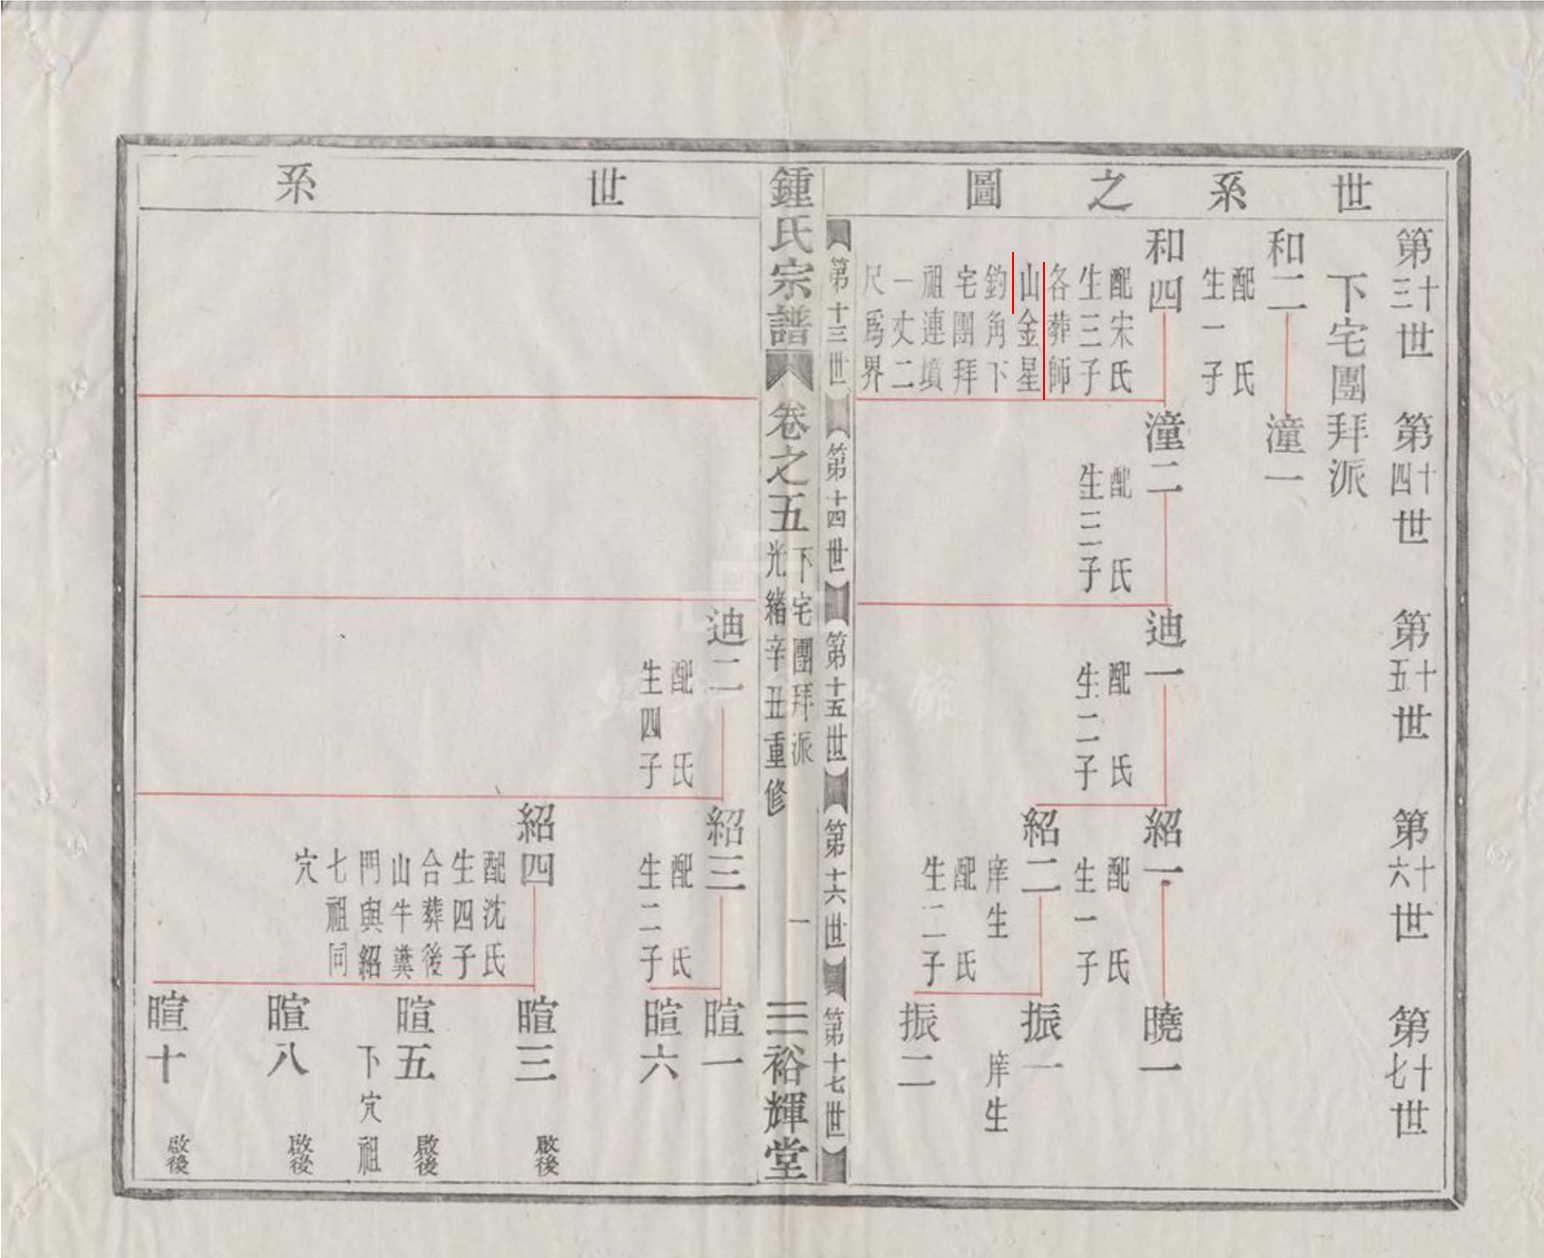 世系之圖
第十三世
第十四世
第十五世
第十六世
第十七世
下宅團拜派
和二
配　氏
生一子
潼一
和四
配宋氏
生三子
各葬師
山金星
鈞角下
宅團拜
祖連墳
一丈二
尺爲界
潼二
配　氏
生三子
迪一
配　氏
生二子
紹一
配　氏
生一子
曉一
紹二
庠生
配　氏
生二子
振一
庠生
振二
第十三世
第十四世
第十五世
第十六世
第十七世
鍾氏宗譜
卷之五
下宅團拜派
光緒辛丑重修
一
三裕輝堂
世系
迪二
配　氏
生四子
紹三
配　氏
生二子
暄一
暄六
紹四
配沈氏
生四子
合葬後
山牛糞
門與紹
七祖同
穴
暄三
啟後
暄五
啟後
下穴祖
暄八
啟後
暄十
啟後